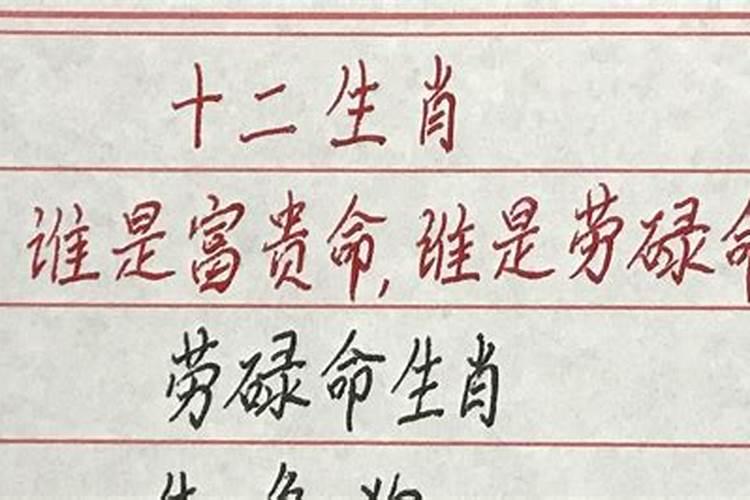 十二生肖
谁是富贵命,谁是劳碌命
劳碌命生肖